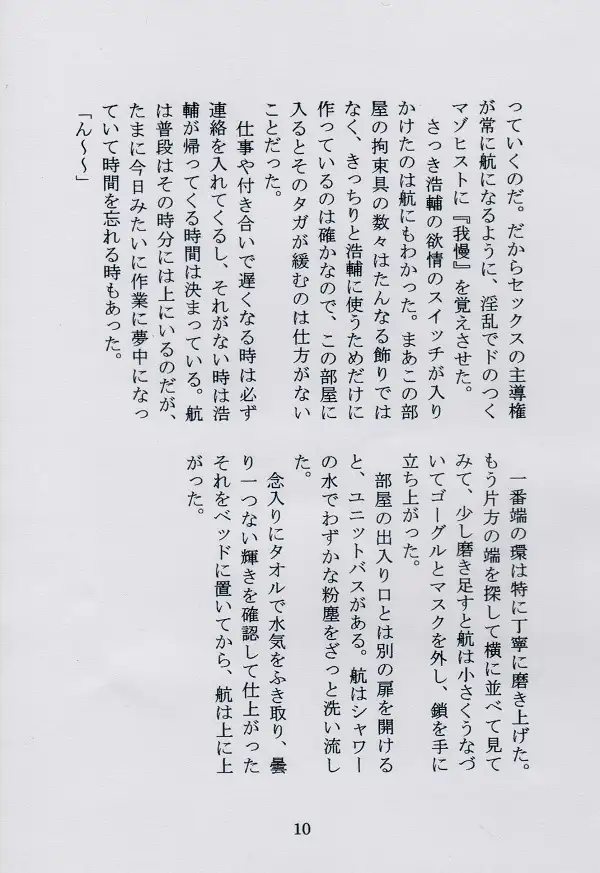 っていくのだ。だからセックスの主導権
が常に航になるように、淫乱でドのつく
マゾヒストに『我慢』を覚えさせた。
さっき浩輔の欲情のスイッチが入り
かけたのは航にもわかった。まあこの部
屋の拘束具の数々はたんなる飾りでは
なく、きっちりと浩輔に使うためだけに
作っているのは確かなので、この部屋に
入るとそのタガが緩むのは仕方がない
ことだった。
仕事や付き合いで遅くなる時は必ず
連絡を入れてくるし、それがない時は浩
輔が帰ってくる時間は決まっている。航
は普段はその時分には上にいるのだが、
たまに今日みたいに作業に夢中になっ
ていて時間を忘れる時もあった。
「ん〜〜」
一番端の環は特に丁寧に磨き上げた。
もう片方の端を探して横に並べて見て
みて、少し磨き足すと航は小さくうなづ
いてゴーグルとマスクを外し、鎖を手に
立ち上がった。
部屋の出入り口とは別の扉を開ける
と、ユニットバスがある。航はシャワー
の水でわずかな粉塵をざっと洗い流し
た。
念入りにタオルで水気をふき取り、曇
り一つない輝きを確認して仕上がった
それをベッドに置いてから、航は上に上
がった。
10